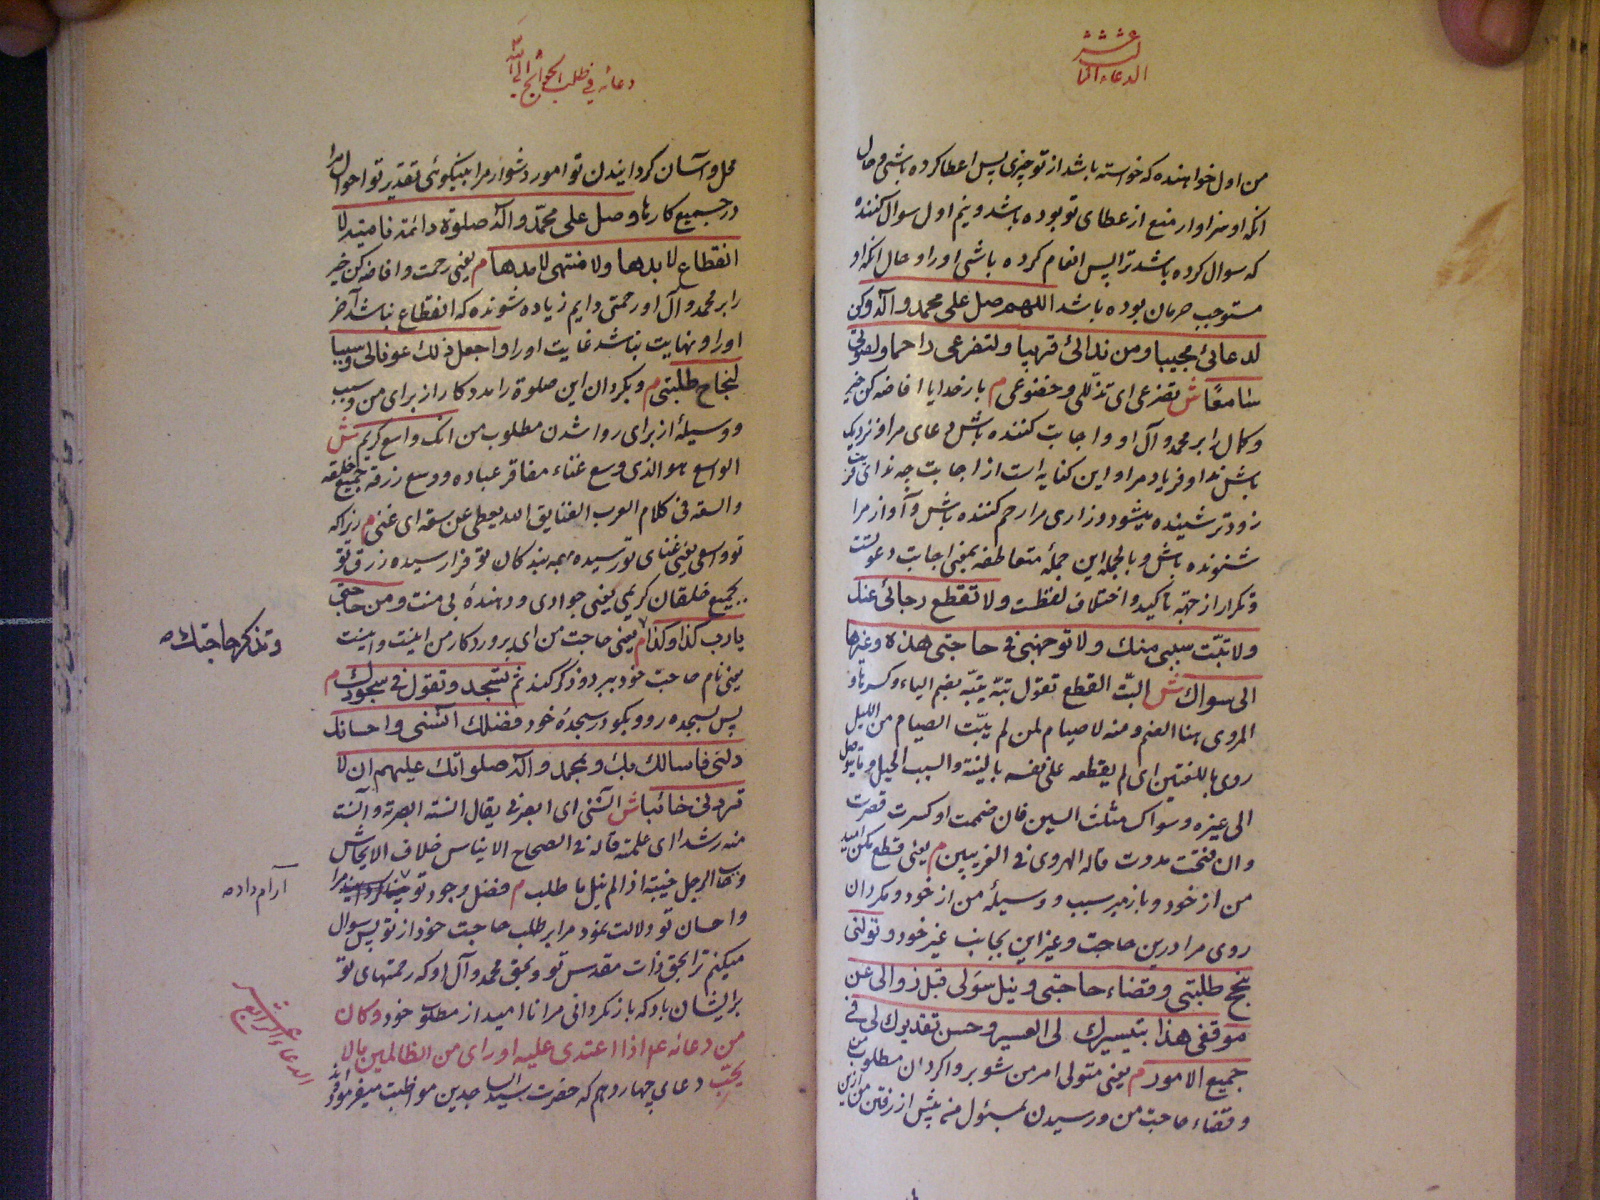 الدعاء الثالث عشر
من اول خواهنده که خواسته باشد از تو چیزی پس اعطا کرده باشی و حال
انکه او سزاوار منع از عطای تو بوده باشد و نیم اول سوال کننده
که سوال کرده باشد ترا پس انعام کرده باشی او را و حال انکه او
مستوجب حرمان بوده باشد اللهم صل علی محمد و آله وکن
لدعائی مجیبا ومن ندائی قریبا ولتضرعی راحما ولصوتی
سامعا ش تضرعی ای تذللی و خضوعی م بار خدایا افاضه کن خیر
و کمال را بر محمد و آل او و اجابت کننده باش دعای مرا و نزدیک
باش ندا و فریاد مرا و این کنایه است از اجابت چه ندای قریب
زودتر شنیده میشود و زاری مرا رحم کننده باش و آواز مرا
شنونده باش و بالجمله این جملهٔ متعاطفه بمعنی اجابت دعوتست
و تکرار از جهة تاکید و اختلاف لفظست ولا تقطع رجائی عنك
ولا تبتّ سببی منك ولا توجهنی فی حاجتی هذه وغیرها
الی سواك ش البتّ القطع تقول بتّه یبتّه بضم الیاء و کسرها و
المروی هنا الضم و منه لا صیام لمن لم یبتّ الصیام من اللیل
روی باللغتین ای لم یقطعه علی نفسه بالنیة والسبب الحبل و ما یتوصل
الی غیره و سواك مثلث السین فان ضممت او کسرت قصرت
و ان فتحت مددت قاله الهروی فی الغریبین م یعنی قطع مکن امید
من از خود و باز مبر سبب و وسیلهٔ من از خود و مگردان
روی مرا درین حاجت و غیر این بجانب غیر خود و تولنی
بنجح طلبتی وقضاء حاجتی ونیل سؤلی قبل زوالی عن
موقفی هذا بتیسیرك لی العسیر وحسن تقدیرك لی فی
جمیع الامور م یعنی متولی امر من شو بروا کردن مطلوب من
و قضاء حاجت من و رسیدن بمسئول من پیش از رفتن من ازین
دعائه فی طلب الحوائج الی الله
محل و آسان گردانیدن تو امور دشوار مرا بنیکوئی تقدیر تو احوال مرا
در جمیع کارها وصل علی محمد وآله صلوة دائمة نامیة لا
انقطاع لابدها ولا منتهی لامدها م یعنی رحمت و افاضه کن خیر
را بر محمد و آل او رحمتی دایم زیاده شونده که انقطاع نباشد آخر
او را و نهایت نباشد غایت او را واجعل ذلك عونا لی وسببا
لنجاح طلبتی م و بگردان این صلوة را مددکار از برای من و سبب
و وسیلهٔ از برای روا شدن مطلوب من انك واسع کریم ش
الواسع هو الذی وسع غناه مفاقر عباده و وسع رزقه جمیع خلقه
والسعة فی کلام العرب الغنا یق الله یعطی عن سعة ای غنی م زیراکه
تو واسعی یعنی غنای تو رسیده بهمه بندکان تو و فرا رسیده رزق تو
بجمیع خلقان کریمی یعنی جوادی و دهندهٔ بی منت ومن حاجتی
یا رب کذا وکذا م یعنی حاجت من ای پروردکار من اینست و اینست
وتذکر حاجتك
یعنی نام حاجت خود ببرد و ذکر کند ثم تسجد وتقول فی سجودك م
پس بسجده رو و بکو در سجدهٔ خود فضلك آنسنی واحسانك
دلنی فاسألك بك وبمحمد وآله صلواتك علیهم ان لا
تردنی خائبا ش آنسنی ای ابصرنی یقال آنسته ابصرته و آنست
منه رشدا ای علمته قاله فی الصحاح الایناس خلاف الایحاش
و خاب الرجل خیبة اذا لم ینل ما طلب م فضل وجود تو مرا
آرام داده
و احسان تو دلالت نمود مرا بر طلب حاجت خود از تو پس سوال
میکنم ترا بحق ذات مقدس تو و بحق محمد و آل او که رحمتهای تو
بر ایشان باد که باز نکردانی مرا نا امید از مطلوب خود وکان
من دعائه ع اذا اعتدی علیه او رای من الظالمین ما لا
الدعاء الرابع عشر
یحبّ دعای چهاردهم که حضرت سید الساجدین مواظبت میفرموده